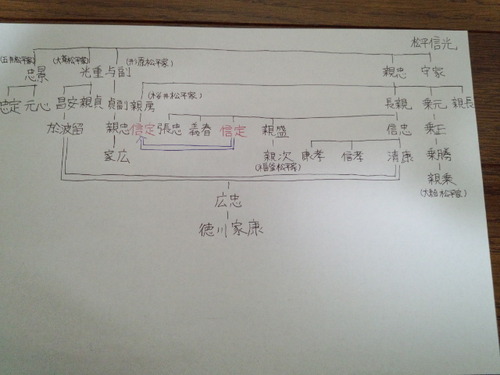 松平信光
(五井松平家) (大草松平家) (形原松平家)
忠景 光重 与副 親忠 守家
(桜井松平家)
忠定 元心 昌安 親貞 貞副 親房 長親 乗元 親長
於波留 親忠 信定 張忠 義春 信定 親盛 信忠 乗正
家広 親次 康孝 信孝 清康 乗勝
(福釜松平家) 親乗
(大給松平家)
広忠
徳川家康